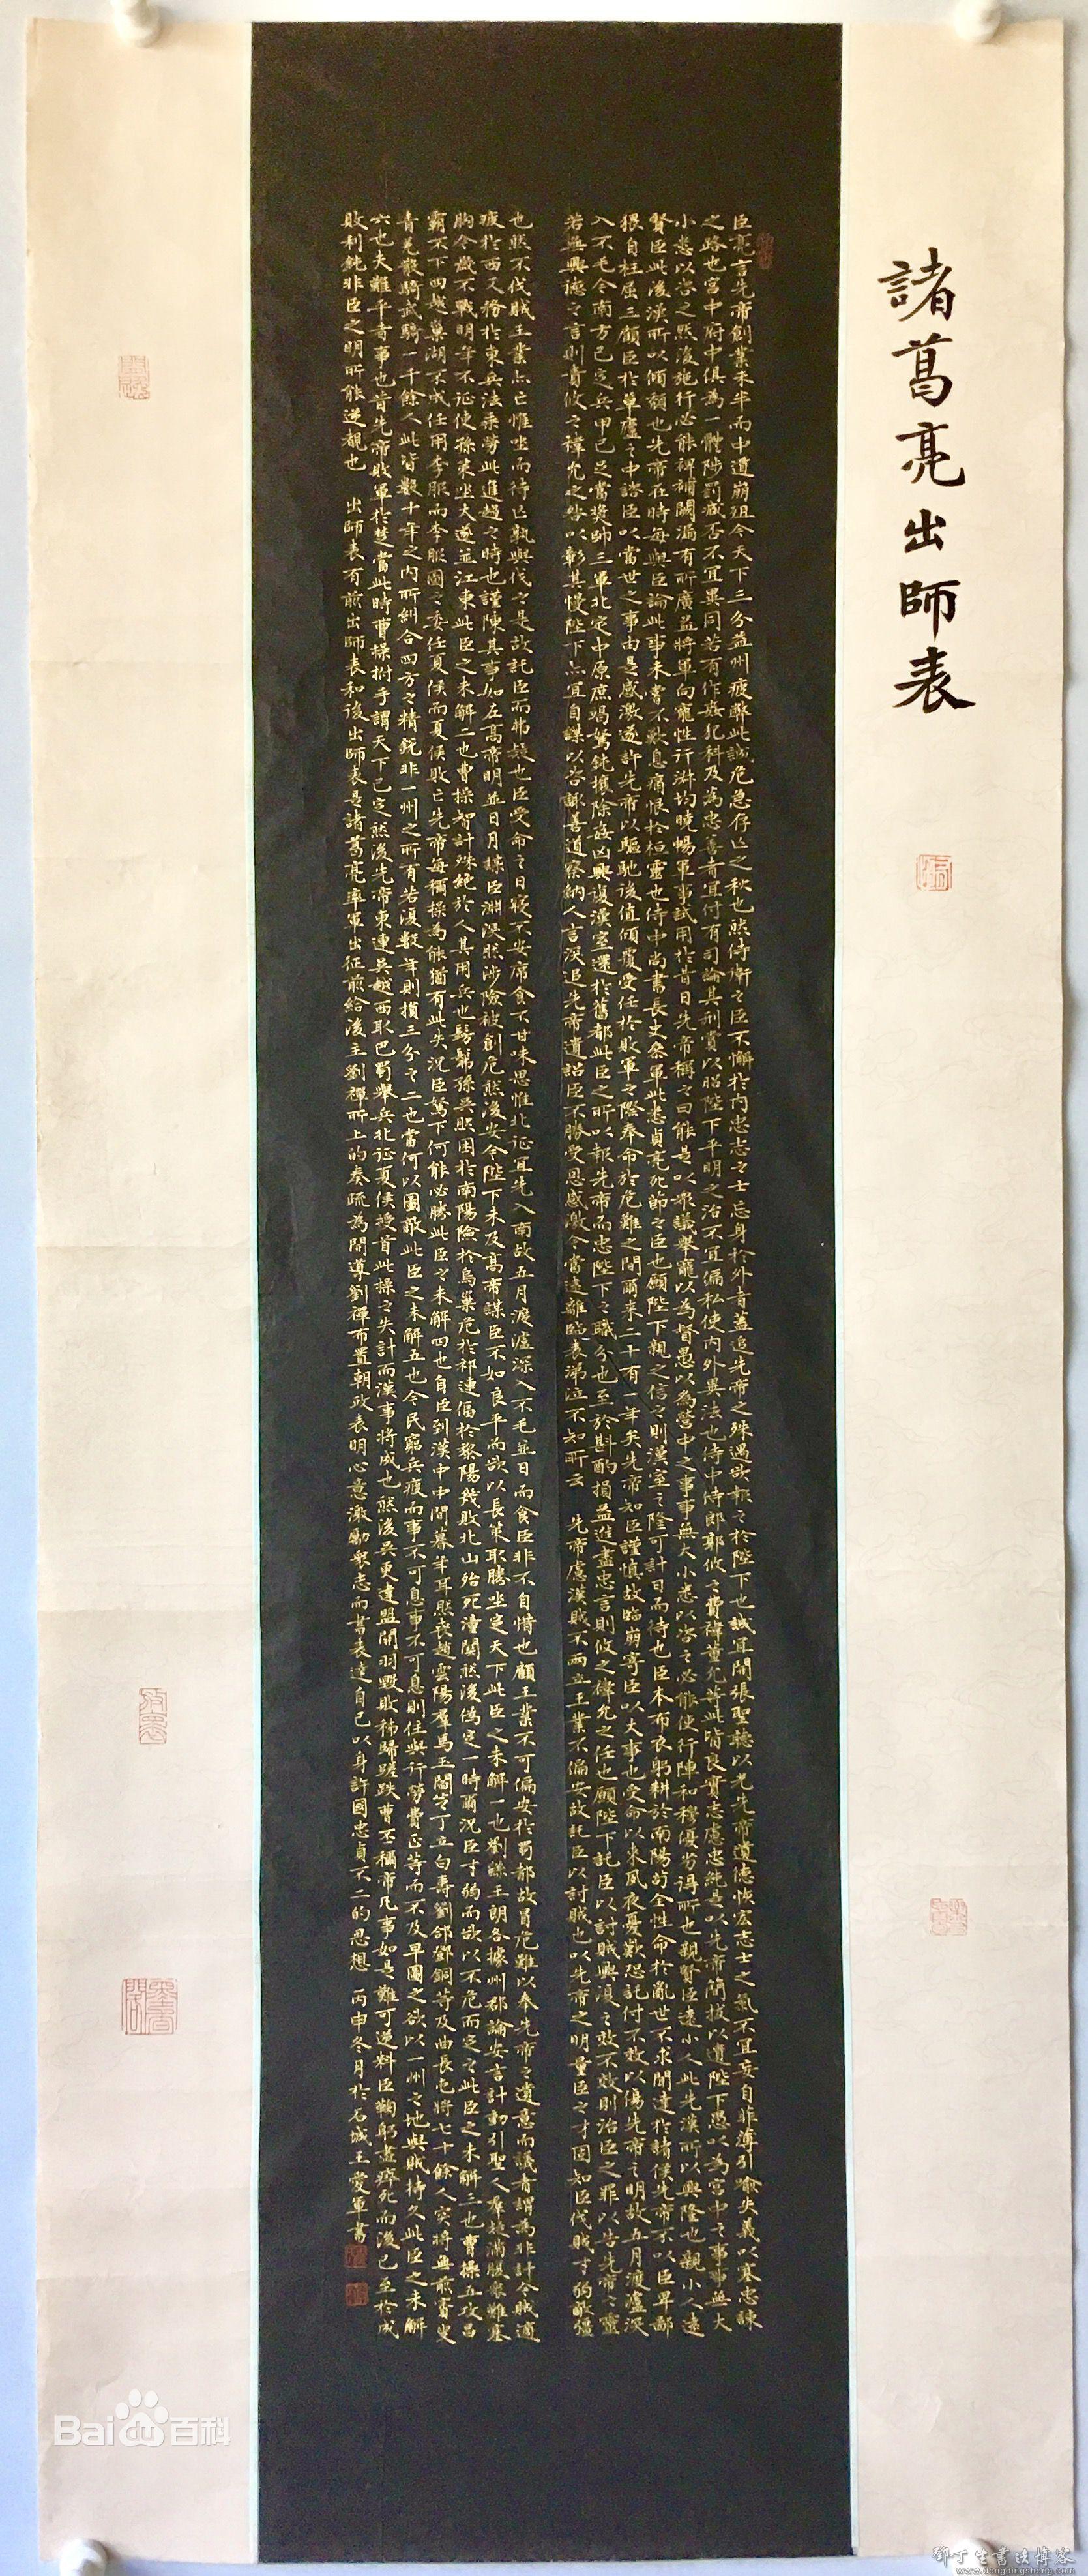 諸葛亮出師表
臣亮言先帝創業未半而中道崩殂今天下三分益州疲弊此誠危急存亡之秋也然侍衛之臣不懈於內忠志之士忘身於外者蓋追先帝之殊遇欲報之於陛下也誠宜開張聖聽以光先帝遺德恢宏志士之氣不宜妄自菲薄引喻失義以塞忠諫
之路也宮中府中俱為一體陟罰臧否不宜異同若有作姦犯科及為忠善者宜付有司論其刑賞以昭陛下平明之治不宜偏私使內外異法也侍中侍郎郭攸之費禕董允等此皆良實志慮忠純是以先帝簡拔以遺陛下愚以為宮中之事事無大
小悉以咨之然後施行必能裨補闕漏有所廣益將軍向寵性行淑均曉暢軍事試用於昔日先帝稱之曰能是以衆議舉寵以為督愚以為營中之事事無大小悉以咨之必能使行陣和穆優劣得所也親賢臣遠小人此先漢所以興隆也親小人遠
賢臣此後漢所以傾頹也先帝在時每與臣論此事未嘗不歎息痛恨於桓靈也侍中尚書長史參軍此悉貞亮死節之臣也願陛下親之信之則漢室之隆可計日而待也臣本布衣躬耕於南陽苟全性命於亂世不求聞達於諸侯先帝不以臣卑鄙
猥自枉屈三顧臣於草廬之中諮臣以當世之事由是感激遂許先帝以驅馳後值傾覆受任於敗軍之際奉命於危難之間爾來二十有一年矣先帝知臣謹慎故臨崩寄臣以大事也受命以來夙夜憂歎恐託付不效以傷先帝之明故五月渡瀘深
入不毛今南方已定兵甲已足當獎帥三軍北定中原庶竭駑鈍攘除姦凶興復漢室還於舊都此臣之所以報先帝而忠陛下之職分也至於斟酌損益進盡忠言則攸之禕允之任也願陛下託臣以討賊興復之效不效則治臣之罪以告先帝之靈
若無興德之言則責攸之禕允之咎以彰其慢陛下亦宜自謀以咨諏善道察納人言深追先帝遺詔臣不勝受恩感激今當遠離臨表涕泣不知所云 先帝慮漢賊不兩立王業不偏安故託臣以討賊也以先帝之明量臣之才固知臣伐賊才弱敵彊
也然不伐賊王業亦亡惟坐而待亡孰與伐之是故託臣而弗疑也臣受命之日寢不安席食不甘味思惟北征宜先入南故五月渡瀘深入不毛並日而食臣非不自惜也顧王業不可偏安於蜀都故冒危難以奉先帝之遺意而議者謂為非計今賊適
疲於西又務於東兵法乘勞此進趨之時也謹陳其事如左高帝明並日月謀臣淵深然涉險被創危然後安今陛下未及高帝謀臣不如良平而欲以長策取勝坐定天下此臣之未解一也劉繇王朗各據州郡論安言計動引聖人羣疑滿腹衆難塞
胸今歲不戰明年不征使孫策坐大遂並江東此臣之未解二也曹操智計殊絕於人其用兵也髣髴孫吳然困於南陽險於烏巢危於祁連偪於黎陽幾敗北山殆死潼關然後偽定一時爾況臣才弱而欲以不危而定之此臣之未解三也曹操五攻昌
霸不下四越巢湖不成任用李服而李服圖之委任夏侯而夏侯敗亡先帝每稱操為能猶有此失況臣駑下何能必勝此臣之未解四也自臣到漢中中間暮年耳然喪趙雲陽羣馬玉閻芝丁立白壽劉郃鄧銅等及曲長屯將七十餘人突將無前賨叟
青羌散騎武騎一千餘人此皆數十年之內所糾合四方之精銳非一州之所有若復數年則損三分之二也當何以圖敵此臣之未解五也今民窮兵疲而事不可息事不可息則住與行勞費正等而不及早圖之欲以一州之地與賊持久此臣之未解
六也夫難平者事也昔先帝敗軍於楚當此時曹操拊手謂天下已定然後先帝東連吳越西取巴蜀舉兵北征夏侯授首此操之失計而漢事將成也然後吳更違盟關羽毀敗秭歸蹉跌曹丕稱帝凡事如是難可逆料臣鞠躬盡瘁死而後已至於成
敗利鈍非臣之明所能逆覩也 出師表有前出師表和後出師表是諸葛亮率軍出征前給後主劉禪所上的奏疏為開導劉禪布置朝政表明心意激勵衆志而書表達自己以身許國忠貞不二的思想 丙申冬月於石城王愛軍書
Baidu百科
鄧丁生書法博客
www.dengdingsheng.com